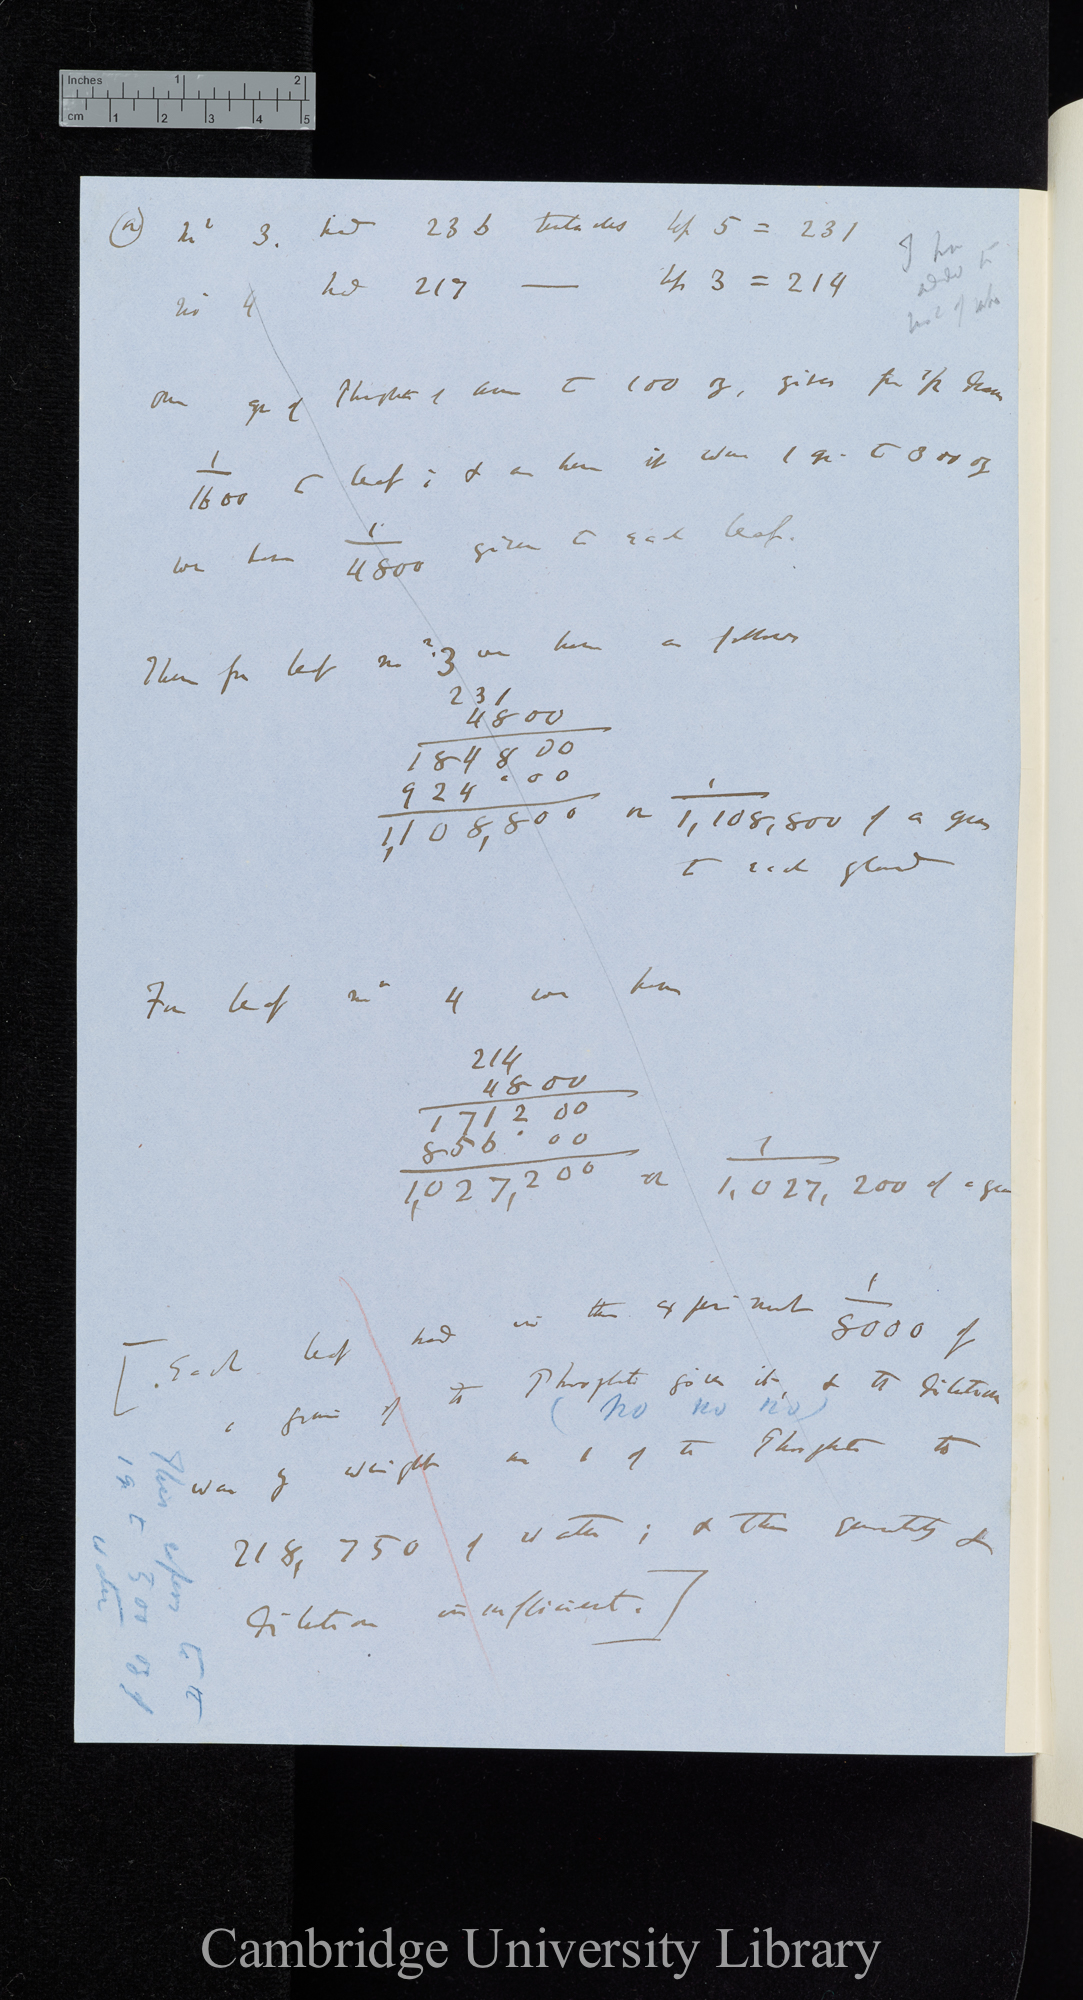 Inches 1 2
cm 1 2 3 4 5
(a) No 3. had 236 tentacles less 5 = 231
No 4 had 217 — less 3 = 214
I have
added to
of water
One gr of Phosphate of Am to 100 oz, gives for 1/2 drachm
1/1600 to leaf; & as here it was 1 gr. to 300 oz
we have 1/4800 given to each leaf.
Then for leaf no 3 we have as follows
231
4800
184800
924·00
1,108,800 or 1/1,108,800 of a grain
to each gland
For leaf no 4 we have
214
4800
171200
856·00
1,027,200 or 1/1,027,200 of a grain
[Each leaf had in this experiment 1/8000 of
a grain of the Phosphate given it, & the dilution
(no no no)
was by weight as 1 of the Phosphate to
218,750 of water; & this quantity &
dilution is insufficient.]
This refers to the
1 gr to 500 oz of
water
Cambridge University Library